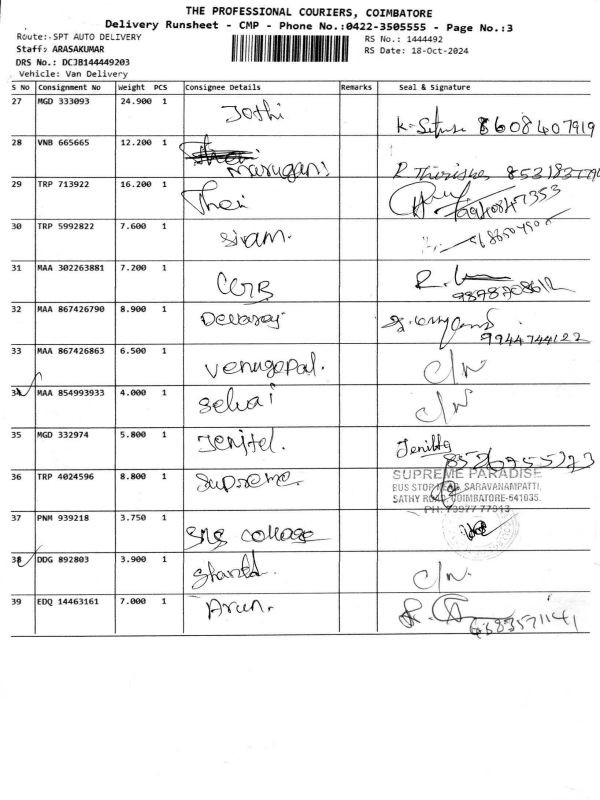 THE PROFESSIONAL COURIERS, COIMBATORE
Delivery Runsheet - CMP - Phone No.:0422-3505555 - Page No.:3
Route: SPT AUTO DELIVERY RS No.: 1444492
Staff: ARASAKUMAR RS Date: 18-Oct-2024
DRS No.: DCJB144449203
Vehicle: Van Delivery
S No Consignment No Weight PCS Consignee Details Remarks Seal & Signature
27 MGD 333093 24.900 1 Jothi
8608407919
28 VNB 665665 12.200 1 Murugan
29 TRP 713922 16.200 1
30 TRP 5992822 7.600 1 Sivam.
31 MAA 302263881 7.200 1
9898208612
32 MAA 867426790 8.900 1 Devaraj
9944744122
33 MAA 867426863 6.500 1 Venugopal. C/N
34 MAA 854993933 4.000 1 Selvai C/N
35 MGD 332974 5.800 1
36 TRP 4024596 8.800 1 Supreme
SUPREME PARADISE
BUS STOP NEAR, SARAVANAMPATTI,
SATHY ROAD COIMBATORE-641035.
PH: 73977 77913
37 PNM 939218 3.750 1 SNS College
38 DDG 892803 3.900 1 C/N.
39 EDQ 14463161 7.000 1 Arun.
6383571141